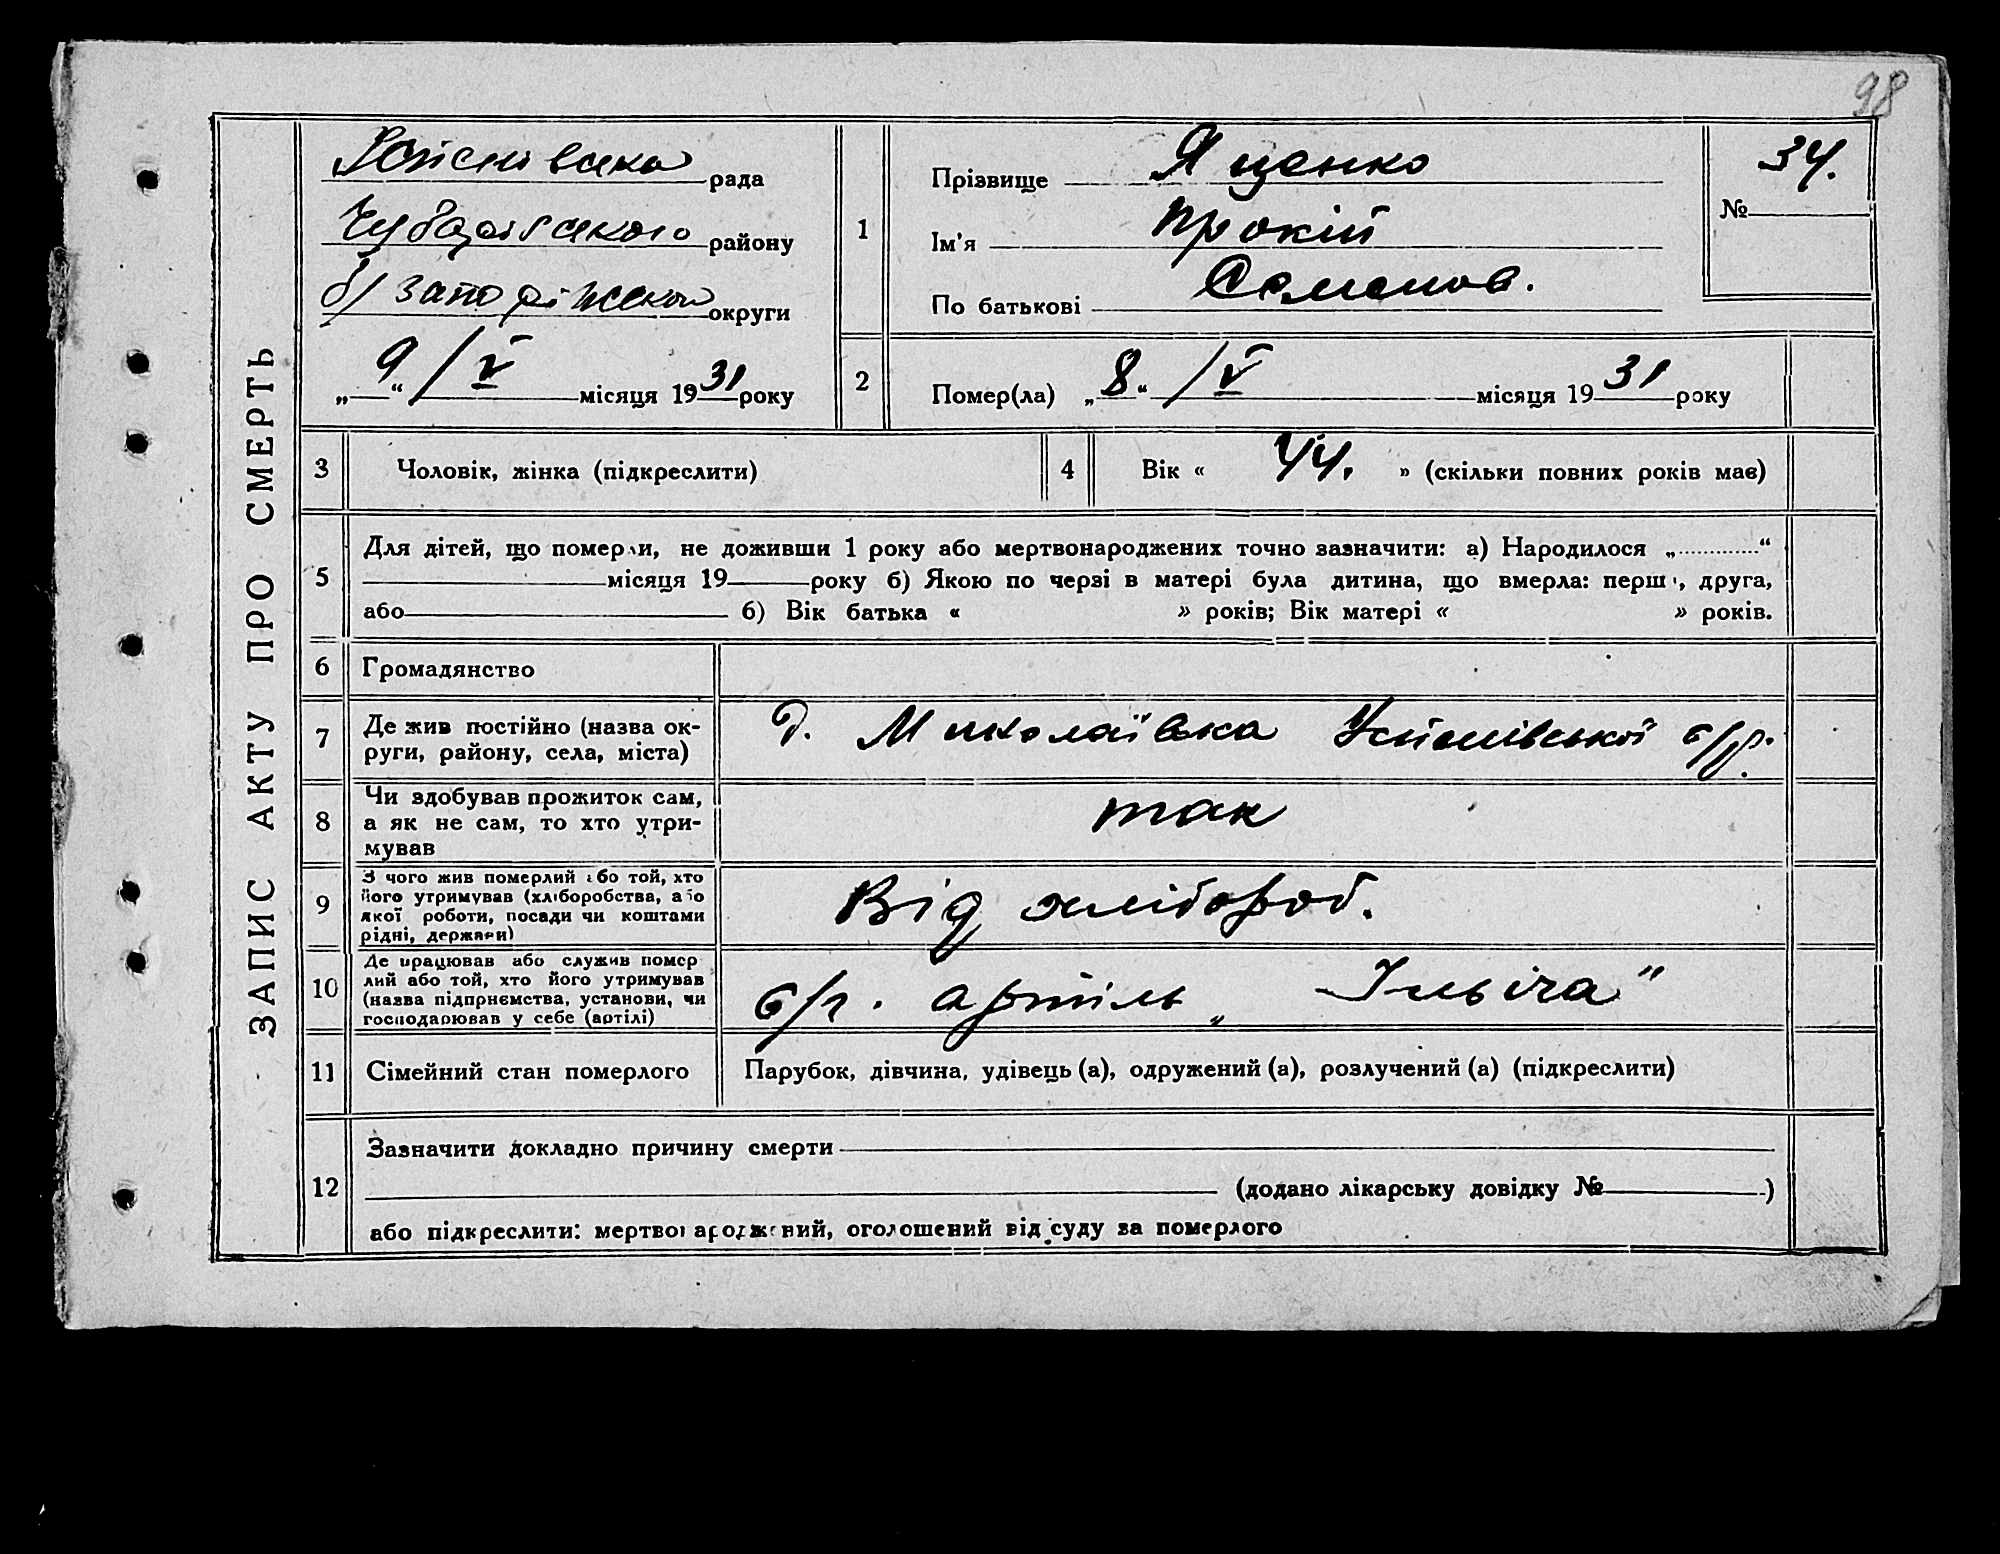 98
ЗАПИС АКТУ ПРО СМЕРТЬ
рада
Чубарівського району
б/ Запоріжської округи
„9“ /V місяця 1931 року
1
Прізвище Яценко
Ім'я Прокій
По батькові Семенов.
№ 34.
2
Помер(ла) „8“ /V місяця 1931 року
3
Чоловік, жінка (підкреслити)
4
Вік « 44. » (скільки повних років має)
5
Для дітей, що померли, не доживши 1 року або мертвонароджених точно зазначити: а) Народилося „ “
місяця 19 року б) Якою по черзі в матері була дитина, що вмерла: перша, друга,
або б) Вік батька « » років; Вік матері « » років.
6
Громадянство
7
Де жив постійно (назва ок-
руги, району, села, міста)
д. Миколаївка с/р.
8
Чи здобував прожиток сам,
а як не сам, то хто утри-
мував
так
9
З чого жив померлий або той, хто
його утримував (хліборобства, або
якої роботи, посади чи коштами
рідні, держави)
Від хлібороб.
10
Де працював або служив помер
лий або той, хто його утримував
(назва підприємства, установи, чи
господарював у себе (артілі)
с/г. артіль „Ільіча"
11
Сімейний стан померлого
Парубок, дівчина, удівець (а), одружений (а), розлучений (а) (підкреслити)
12
Зазначити докладно причину смерти
(додано лікарську довідку № )
або підкреслити: мертвонароджений, оголошений від суду за померлого